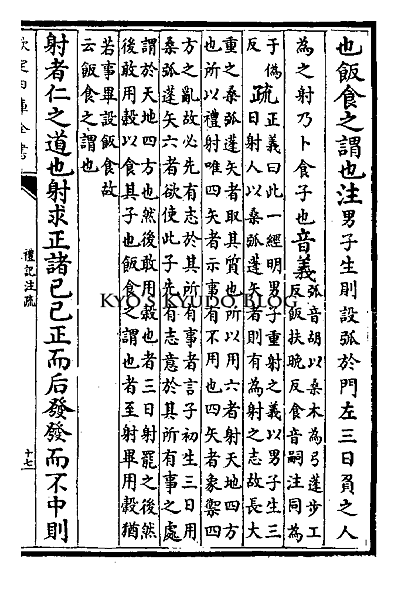 也飯食之謂也注男子生則設弧於門左三日負之人
為之射乃卜食子也音義弧音胡以桑木為弓蓬步工
反飯扶晚反食音嗣注同為
于偽
反疏正義曰此一經明男子重射之義以男子生三
日射人以桑弧蓬矢者則有為射之志故長大
重之桑弧蓬矢者取其質也所以用六者射天地四方
也所以禮射唯四矢者示事有不用也四矢者象禦四
方之亂故必先有志於其所有事者言子初生三日用
桑弧蓬矢六者欲使此子先有志意於其所有事之處
謂於天地四方也然後敢用穀也者三日射罷之後然
後敢用穀以食其子也飯食之謂也者至射畢用穀猶
若事畢設飯食故
云飯食之謂也
射者仁之道也射求正諸己己正而后發發而不中則
欽定四庫全書
禮記注疏
十七
KYO'S KYUDO BLOG